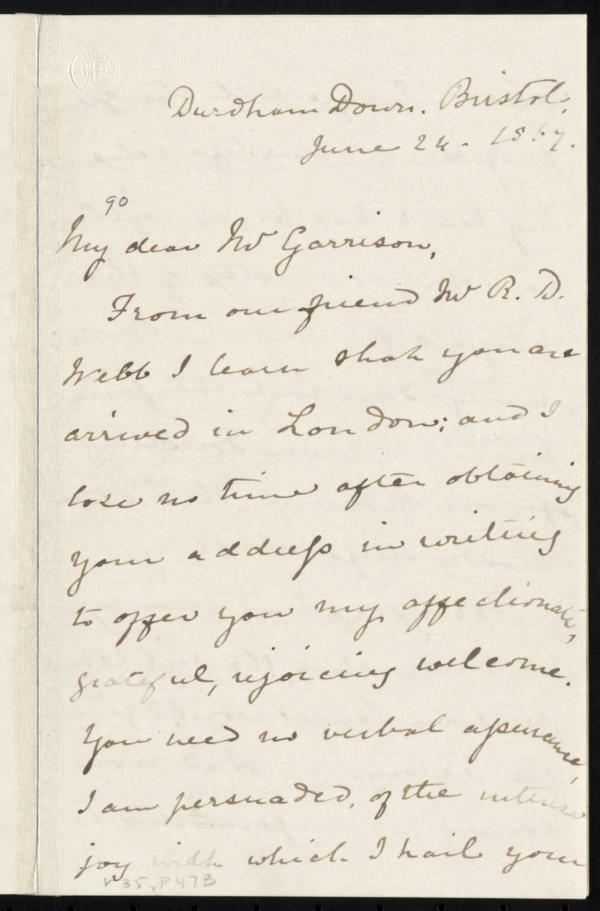 Durdham Down. Bristol.
June 24. 1867.
90
My dear Mr Garrison,
From our friend Mr R. D.
Webb I learn that you are
arrived in London; and I
lose no time after obtaining
your address in writing
to offer you my affectionate,
grateful, rejoicing welcome.
You need no verbal assurance,
I am persuaded, of the intense
joy with which I hail your
v.35, P47B